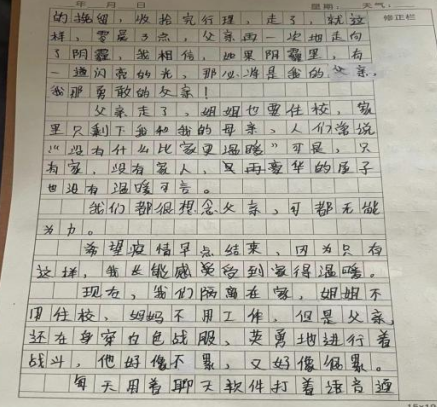 年 月 日 星期： 天气：
修正栏
的挽留，收拾完行李，走了，就这
样，零晨3点，父亲再一次地走向
了阴霾，我相信，如果阴霾里，有
一道闪亮的光，那必将是我的父亲，
我那勇敢的父亲！
父亲走了，姐姐也要住校，家
里只剩下我和我的母亲，人们常说
“没有什么比家更温暖”可是，只
有家，没有家人，只再豪华的房子
也没有温暖可言。
我们都很想念父亲，可都无能
为力。
希望疫情早点结束，因为只有
这样，我才能感受到家得温暖。
现在，我们隔离在家，姐姐不
用住校，妈妈不用工作，但是父亲
还在身穿白色战服，英勇地进行着
战斗，他好像不累，又好像很累。
每天用着聊天软件打着语音通